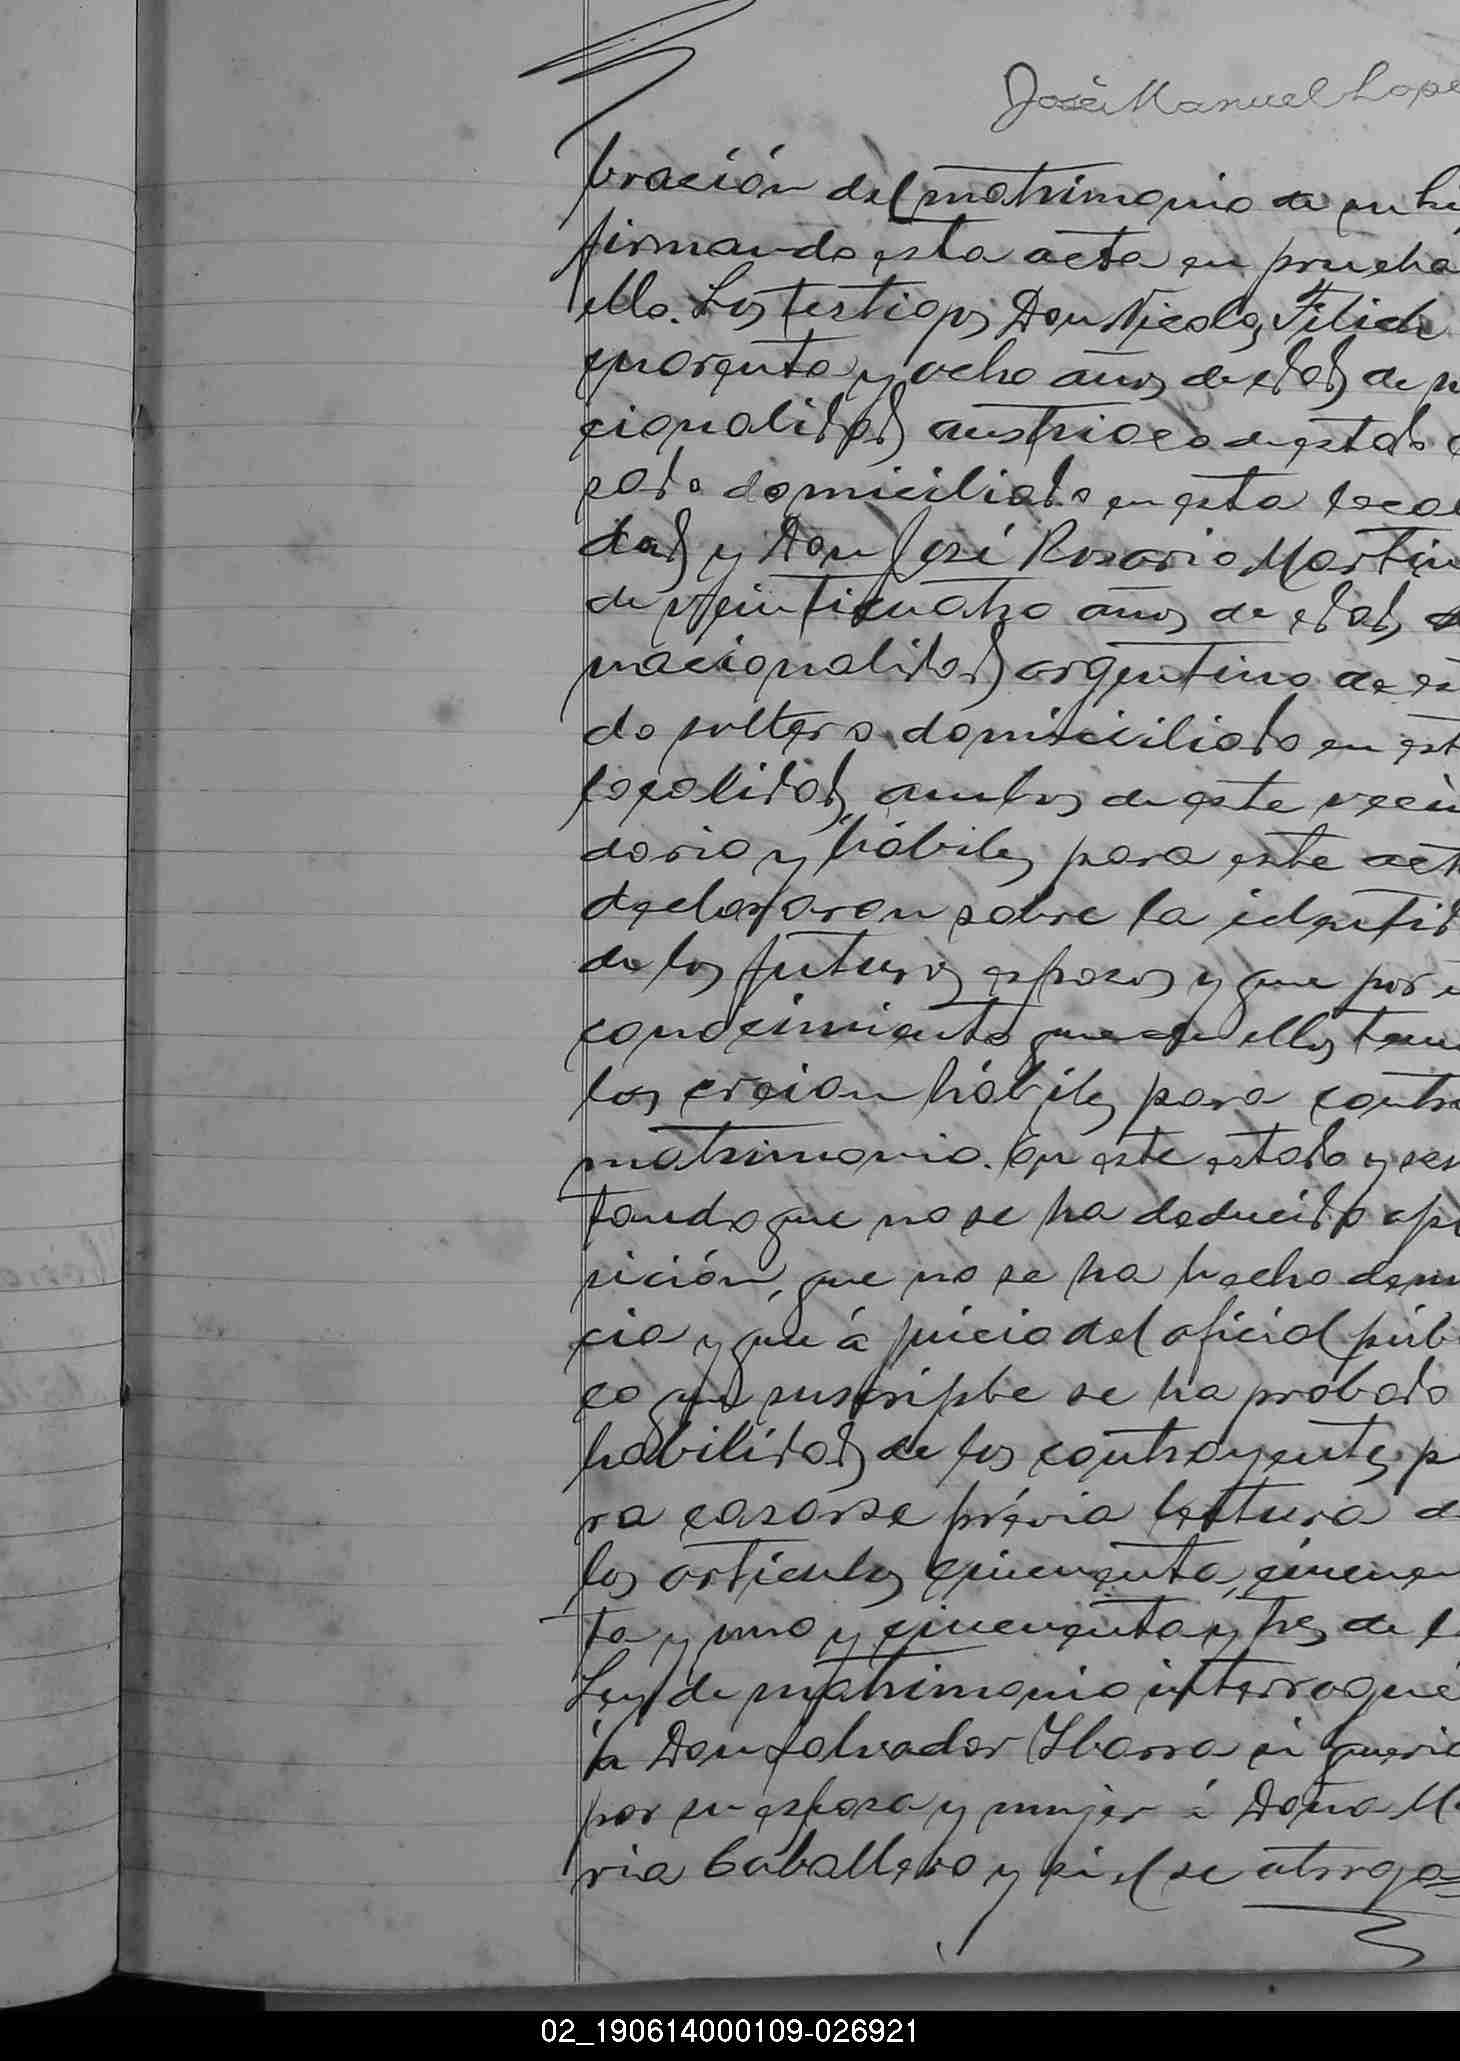 José Manuel Lope
bración del matrimonio de su hi
firmando esta acta en prueba
ello. Los testigos Don Nicolas Filich
cuarenta y ocho años de edad de n
cionalidad austriaco de estado c
sado domiciliado en esta local
dad y Don José Rosario Martin
de veinticuatro años de edad de
nacionalidad argentino de es
do soltero domiciliado en est
localidad, ambos de este vecin
dario y hábiles para este act
declararon sobre la identid
de los futuros esposos y que por e
conocimiento que de ellos tien
los creian hábiles para contra
matrimonio. En este estado y
tando que no se ha deducido opo
sición, que no se ha hecho denun
cia y que á juicio del oficial públ
co que suscribe se ha probado
habilidad de los contrayentes p
ra casarse prévia lectura d
los articulos cincuenta, cincuen
ta y uno y cincuenta y tres de l
Ley de matrimonio interrogué
á Don Salvador Ybarra si queria
por su esposa y mujer á Doña Ma
ria Caballero y si el se otorga=
02_190614000109-026921